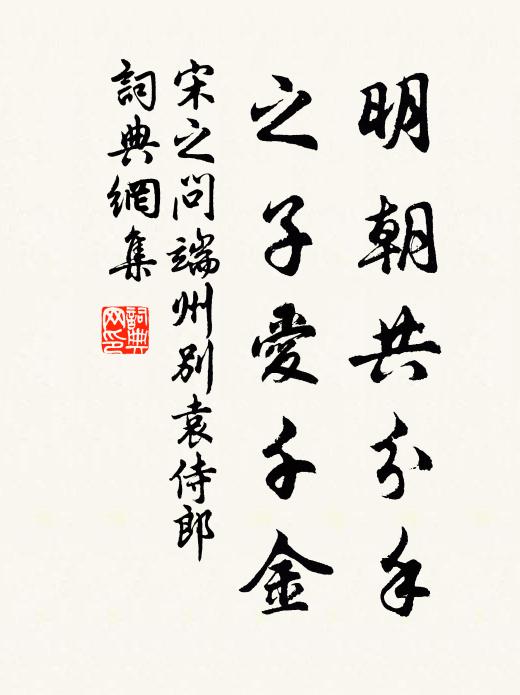 明朝共分手
之子愛千金
宋之問端州別袁侍郎
詞典網集
詞典网印